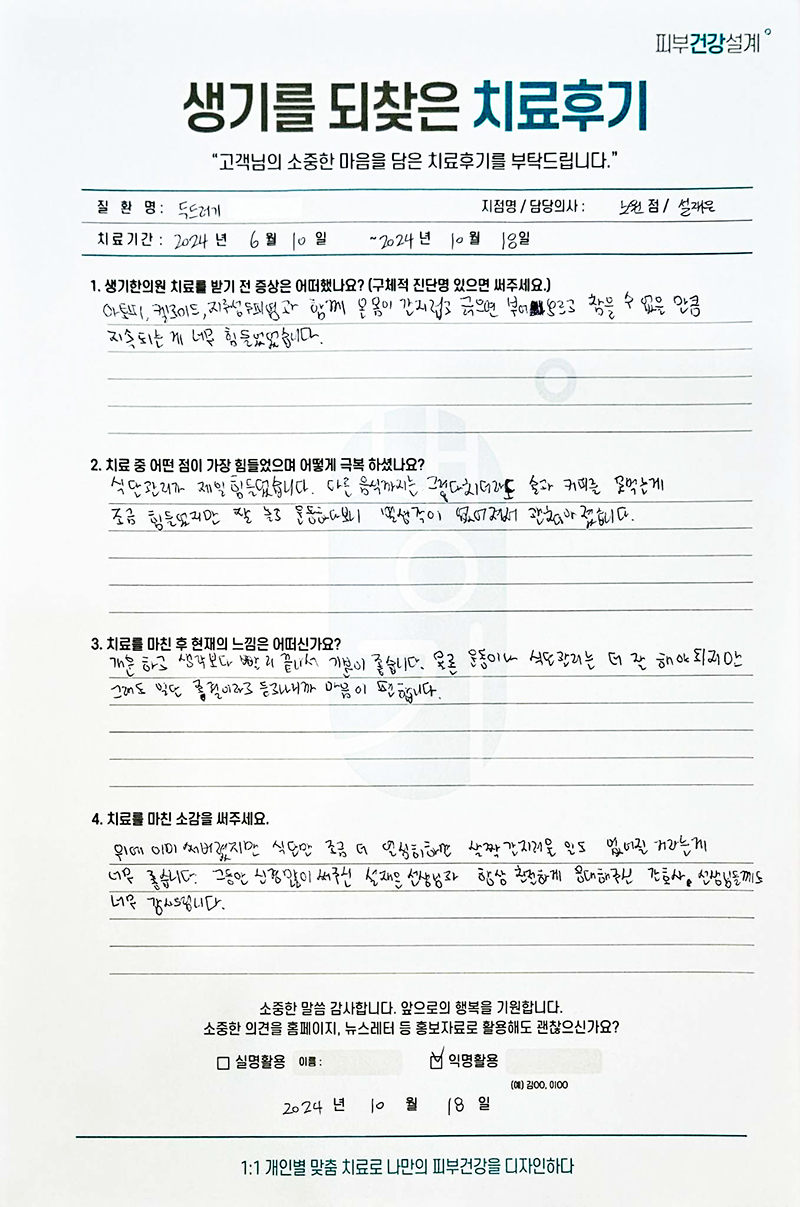 피부건강설계
생기를 되찾은 치료후기
“고객님의 소중한 마음을 담은 치료후기를 부탁드립니다.”
질 환 명 : 두드러기 지점명 / 담당의사 : 노원 점 / 설재은
치료기간 : 2024 년 6 월 10 일 ~2024 년 10 월 18일
1. 생기한의원 치료를 받기 전 증상은 어떠했나요? (구체적 진단명 있으면 써주세요.)
아토피, 켈로이드, 지루성두피염과 함께 온몸이 간지럽고 긁으면 부어오르고 참을 수 없을 만큼
지속되는 게 너무 힘들었었습니다.
2. 치료 중 어떤 점이 가장 힘들었으며 어떻게 극복 하셨나요?
식단관리가 제일 힘들었습니다. 다른 음식까지는 그렇다치더라도 술과 커피를 못먹는게
조금 힘들었지만 잘 놀고 운동하다보니 별생각이 없어져서 괜찮아 졌습니다.
3. 치료를 마친 후 현재의 느낌은 어떠신가요?
개운 하고 생각보다 빨리 끝나서 기분이 좋습니다. 물론 운동이나 식단관리는 더 잘 해야 되지만
그래도 일단 종결이라고 듣고나니까 마음이 편합니다.
4. 치료를 마친 소감을 써주세요.
위에 이미 써버렸지만 식단만 조금 더 열심히하면 살짝 간지러울 일도 없어질 거라는게
너무 좋습니다. 그동안 신경많이 써주신 설재은 선생님과 항상 친절하게 응대해주신 간호사, 선생님들께도
너무 감사드립니다.
소중한 말씀 감사합니다. 앞으로의 행복을 기원합니다.
소중한 의견을 홈페이지, 뉴스레터 등 홍보자료로 활용해도 괜찮으신가요?
실명활용 이름 : 익명활용
(예) 김OO, 이OO
2024 년 10 월 18 일
1:1 개인별 맞춤 치료로 나만의 피부건강을 디자인하다